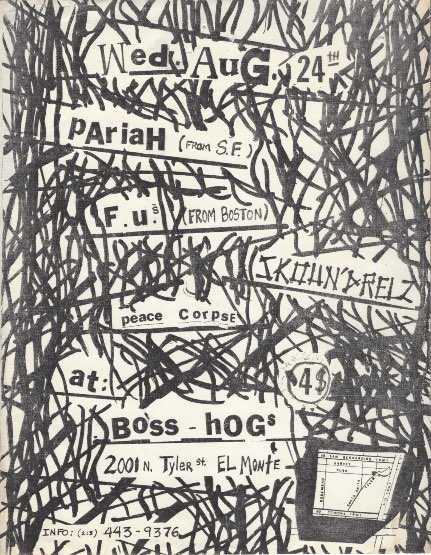 Wed. AuG. 24TH
PAriaH (FROM S.F.)
F.U.s (FROM BOSTON)
SKOUN'DRELZ
peace CorpsE
at:
4$
BOSS - hOGs
2001 N. Tyler St. EL MontE
INFO: (213) 443-9376